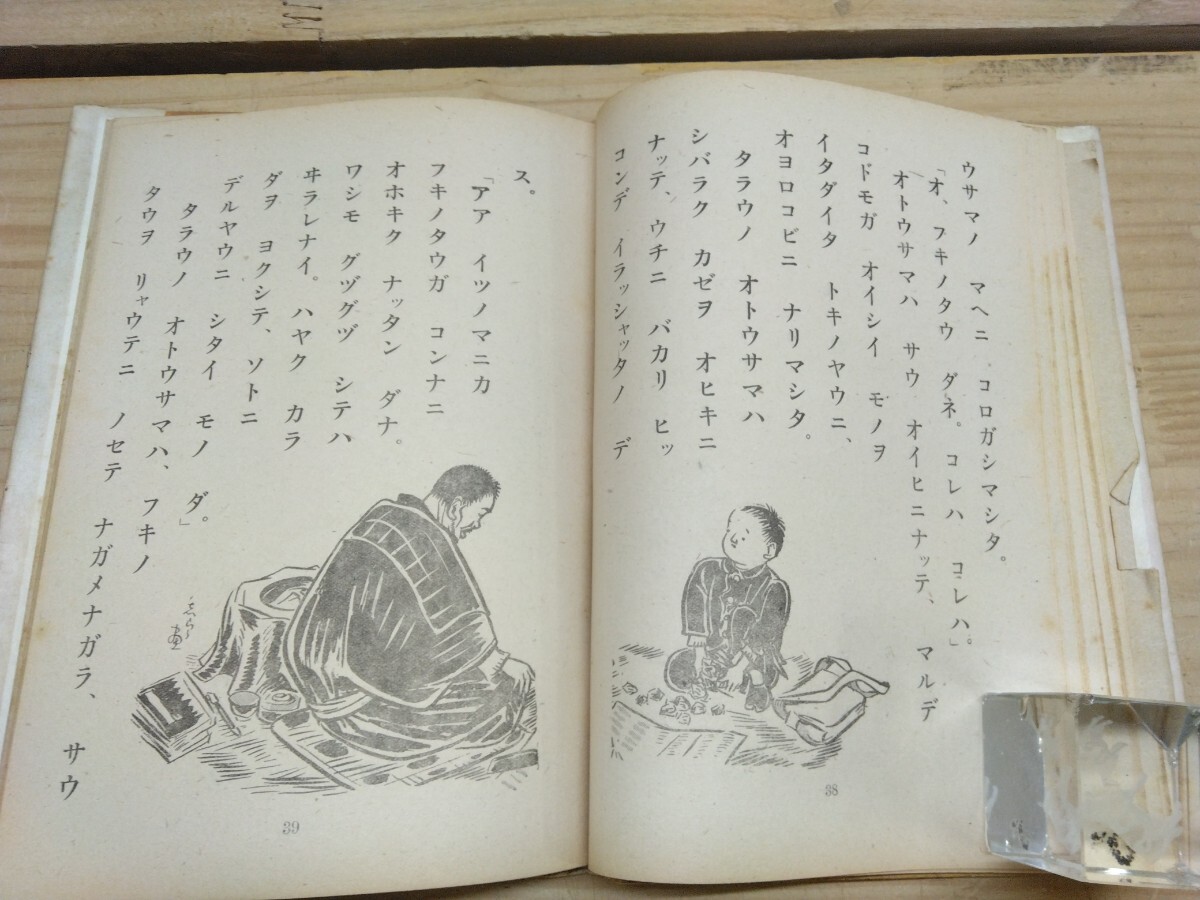 ウサマノ マヘニ コロガシマシタ。
「オ、フキノタウ ダネ。コレハ コレハ」。
オトウサマハ サウ オイヒニナッテ、マルデ
コドモガ オイシイ モノヲ
イタダイタ トキノヤウニ、
オヨロコビニ ナリマシタ。
タラウノ オトウサマハ
シバラク カゼヲ オヒキニ
ナッテ、ウチニ バカリ ヒッ
コンデ イラッシャッタノ デ
38
ス。
「アア イツノマニカ
フキノタウガ コンナニ
オホキク ナッタン ダナ。
ワシモ グヅグヅ シテハ
ヰラレナイ。ハヤク カラ
ダヲ ヨクシテ、ソトニ
デルヤウニ シタイ モノ ダ。」
タラウノ オトウサマハ、フキノ
タウヲ リャウテニ ノセテ ナガメナガラ、サウ
画
39